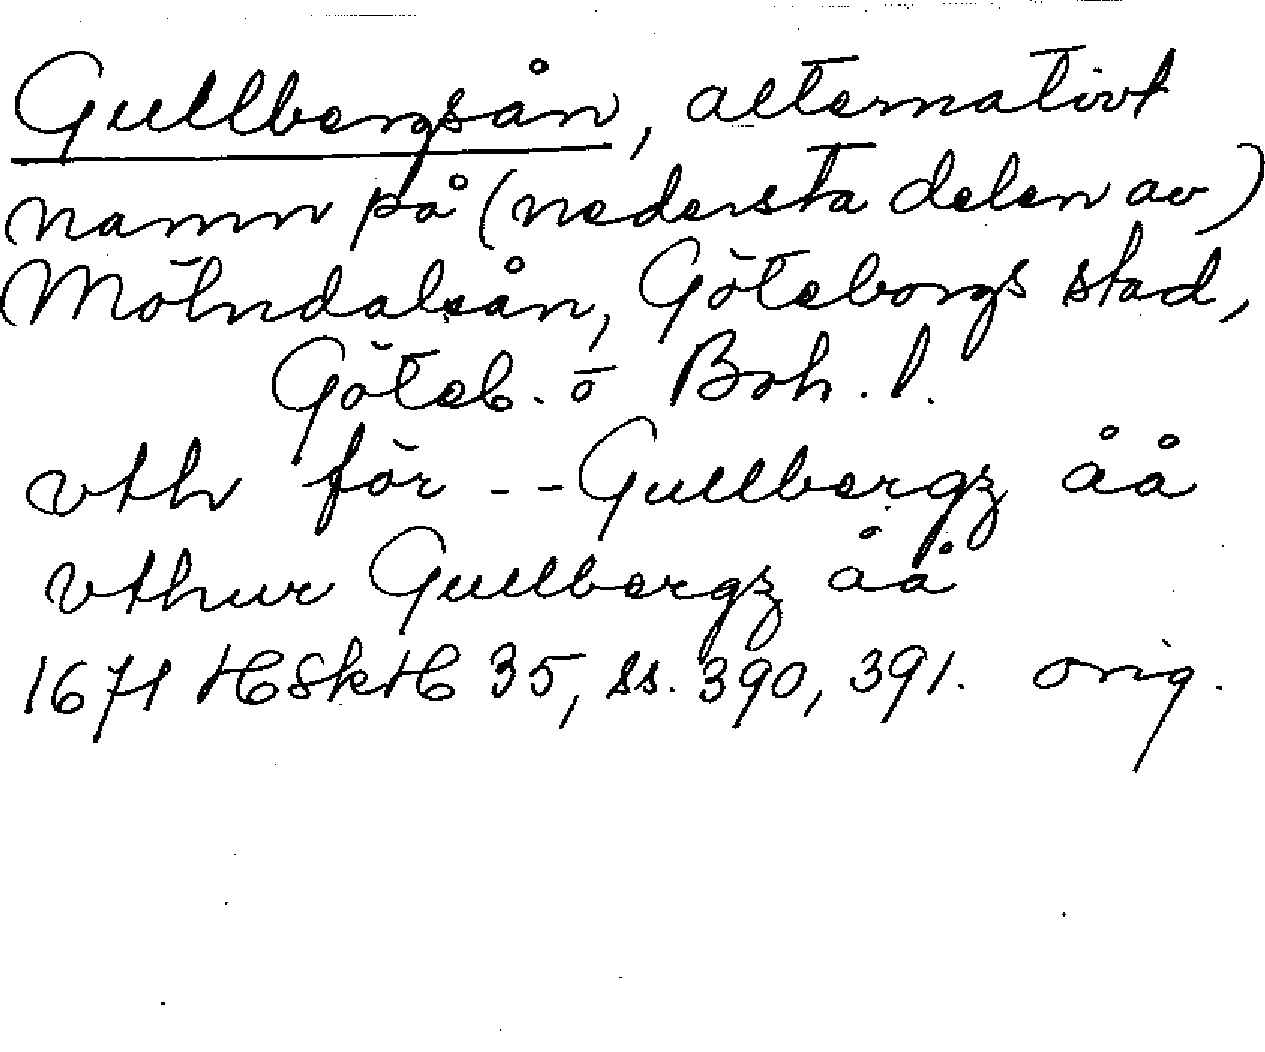 Gullbergsån, alternativt
namn på (nedersta delen av)
Mölndalsån, Göteborgs stad,
Göteb. o Boh. l.
vth för -- Gullbergz åå
vthur Gullbergz åå
1671 HSkH 35, ss. 390, 391. orig.